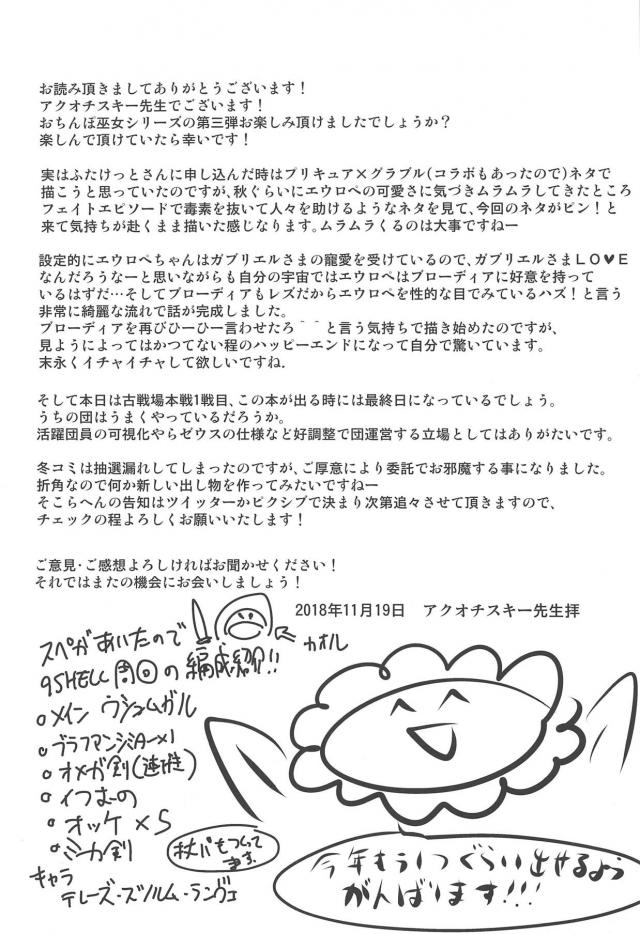 お読み頂きましてありがとうございます！
アクオチスキー先生でございます！
おちんぽ巫女シリーズの第三弾お楽しみ頂けましたでしょうか？
楽しんで頂けていたら幸いです！
実はふたけっとさんに申し込んだ時はプリキュア×グラブル(コラボもあったので)ネタで
描こうと思っていたのですが、秋ぐらいにエウロペの可愛さに気づきムラムラしてきたところ
フェイトエピソードで毒素を抜いて人々を助けるようなネタを見て、今回のネタがピン！と
来て気持ちが赴くまま描いた感じなります。ムラムラくるのは大事ですねー
設定的にエウロペちゃんはガブリエルさまの寵愛を受けているので、ガブリエルさまＬＯ♥Ｅ
なんだろうなーと思いながらも自分の宇宙ではエウロペはブローディアに好意を持って
いるはずだ…そしてブローディアもレズだからエウロペを性的な目でみているハズ！と言う
非常に綺麗な流れで話が完成しました。
ブローディアを再びひーひー言わせたろ＾＾と言う気持ちで描き始めたのですが、
見ようによってはかつてない程のハッピーエンドになって自分で驚いています。
末永くイチャイチャして欲しいですね.
そして本日は古戦場本戦1戦目、この本が出る時には最終日になっているでしょう。
うちの団はうまくやっているだろうか。
活躍団員の可視化やらゼウスの仕様など好調整で団運営する立場としてはありがたいです。
冬コミは抽選漏れしてしまったのですが、ご厚意により委託でお邪魔する事になりました。
折角なので何か新しい出し物を作ってみたいですねー
そこらへんの告知はツイッターかピクシブで決まり次第追々させて頂きますので、
チェックの程よろしくお願いいたします！
ご意見・ご感想よろしければお聞かせください！
それではまたの機会にお会いしましょう！
2018年11月19日　アクオチスキー先生拝
スペがあいたので
カオル
9SHELL周回の編成紹介!!
○メイン ウシュムガル
○ブラフマンジミター×1
○オメガ剣(連性)
○イつおーの
○オッケ×5
○ミカ剣
杖パもつくって
ます.
キャラ
テレーズ・ズソルム・ランヴェ
今年もう1つぐらい出せるよう
がんばります!!!